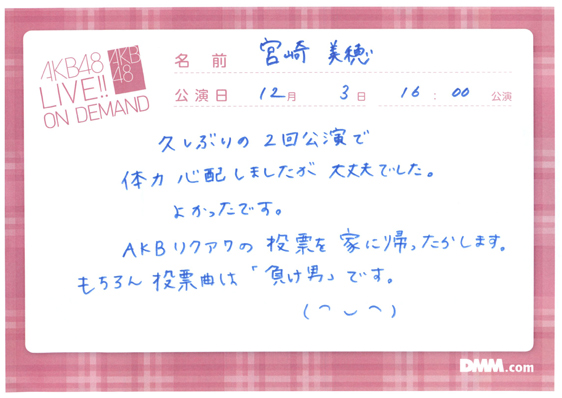 AKB48
LIVE!!
ON DEMAND
AKB
48
名前 宮崎 美穂
公演日 12月 3日 16:00 公演
久しぶりの 2回公演で
体力 心配しましたが 大丈夫でした。
よかったです。
AKBリクアワの 投票を 家に帰ったらします。
もちろん 投票曲は「負け男」です。
(⌒‿⌒)
DMM.com